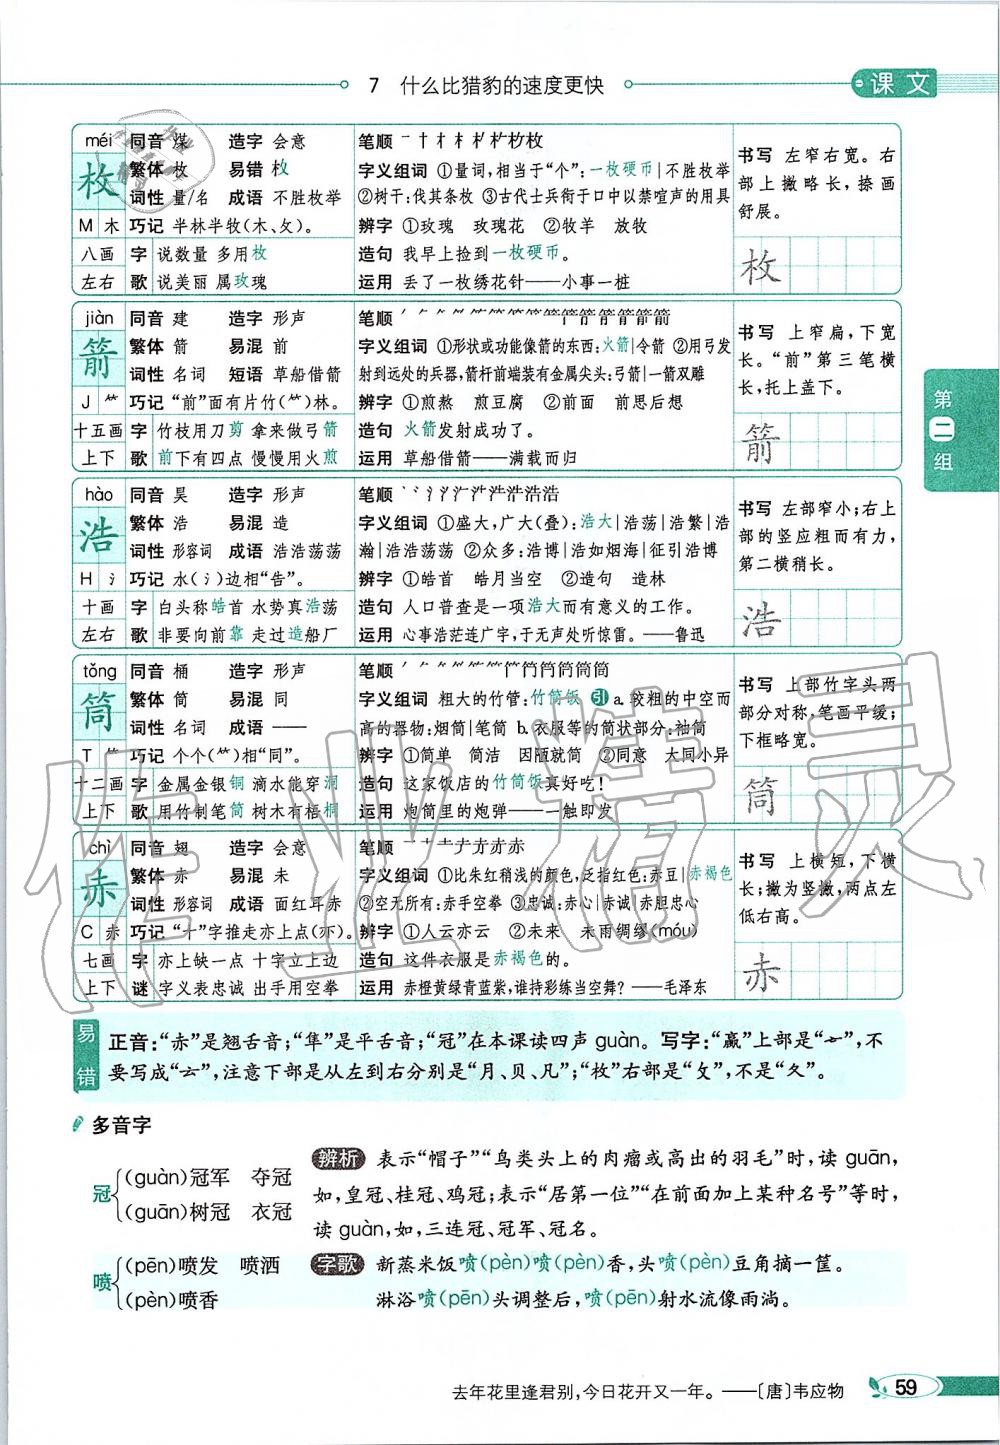 7 什么比猎豹的速度更快
课文
méi 同音 煤 造字 会意 笔顺
枚 繁体 枚 易错 枚 字义组词 ①量词,相当于“个”:一枚硬币|不胜枚举
词性 量/名 成语 不胜枚举 ②树干:伐其条枚 ③古代士兵衔于口中以禁喧声的用具
M 木 巧记 半林半牧(木、攵)。 辨字 ①玫瑰 玫瑰花 ②牧羊 放牧
八画 字 说数量 多用枚 造句 我早上捡到一枚硬币。
左右 歌 说美丽 属玫瑰 运用 丢了一枚绣花针——小事一桩
书写 左窄右宽。右
部上撇略长,捺画
舒展。
枚
jiàn 同音 建 造字 形声 笔顺
箭 繁体 箭 易混 前 字义组词 ①形状或功能像箭的东西:火箭|令箭 ②用弓发
词性 名词 短语 草船借箭 射到远处的兵器,箭杆前端装有金属尖头:弓箭|一箭双雕
J ⺮ 巧记 “前”面有片竹(⺮)林。 辨字 ①煎熬 煎豆腐 ②前面 前思后想
十五画 字 竹枝用刀剪 拿来做弓箭 造句 火箭发射成功了。
上下 歌 前下有四点 慢慢用火煎 运用 草船借箭——满载而归
书写 上窄扁,下宽
长。“前”第三笔横
长,托上盖下。
箭
第二组
hào 同音 昊 造字 形声 笔顺
浩 繁体 浩 易混 造 字义组词 ①盛大,广大(叠):浩大|浩荡|浩繁|浩
词性 形容词 成语 浩浩荡荡 瀚|浩渺|浩博 ②众多:浩博|浩如烟海|征引浩博
H 氵 巧记 水(氵)边相“告”。 辨字 ①皓首 皓月当空 ②造句 造林
十画 字 白头称皓首 水势真浩荡 造句 人口普查是一项浩大而有意义的工作。
左右 歌 非要向前靠 走过造船厂 运用 心事浩茫连广宇,于无声处听惊雷。——鲁迅
书写 左部窄小;右上
部的竖应粗而有力,
第二横稍长。
浩
tǒng 同音 桶 造字 形声 笔顺
筒 繁体 筒 易混 同 字义组词 粗大的竹管:竹筒饭 引 a.较粗的中空而
词性 名词 成语 —— 高的器物:烟筒|笔筒 b.衣服等的筒状部分:袖筒
T ⺮ 巧记 个个(⺮)相“同”。 辨字 ①简单 简洁 因陋就简 ②同意 大同小异
十二画 字 金属金银铜 滴水能穿洞 造句 这家饭店的竹筒饭真好吃!
上下 歌 用竹制笔筒 树木有梧桐 运用 炮筒里的炮弹——一触即发
书写 上部竹字头两
部分对称,笔画平缓;
下框略宽。
筒
chì 同音 翅 造字 会意 笔顺
赤 繁体 赤 易混 未 字义组词 ①比朱红稍浅的颜色,泛指红色:赤豆|赤褐色
词性 形容词 成语 面红耳赤 ②空无所有:赤手空拳 ③忠诚:赤心|赤诚 赤胆忠心
C 赤 巧记 “十”字推走亦上点(亦)。 辨字 ①人云亦云 ②未来 未雨绸缪(móu)
七画 字 亦上缺一点 十字立上边 造句 这件衣服是赤褐色的。
上下 谜 字义表忠诚 出手用空拳 运用 赤橙黄绿青蓝紫,谁持彩练当空舞?——毛泽东
书写 上横短,下横
长;撇为竖撇,两点左
低右高。
赤
易错 正音:“赤”是翘舌音;“隼”是平舌音;“冠”在本课读四声 guàn。写字:“赢”上部是“亠”,不
要写成“云”,注意下部是从左到右分别是“月、贝、凡”;“枚”右部是“攵”,不是“久”。
多音字
冠 (guàn)冠军 夺冠
(guān)树冠 衣冠
辨析 表示“帽子”“鸟类头上的肉瘤或高出的羽毛”时,读 guān,
如,皇冠、桂冠、鸡冠;表示“居第一位”“在前面加上某种名号”等时,
读 guàn,如,三连冠、冠军、冠名。
喷 (pēn)喷发 喷洒
(pèn)喷香
字歌 新蒸米饭喷(pèn)喷(pèn)香,头喷(pèn)豆角摘一筐。
淋浴喷(pēn)头调整后,喷(pēn)射水流像雨淌。
去年花里逢君别,今日花开又一年。——〔唐〕韦应物
59
作业精灵